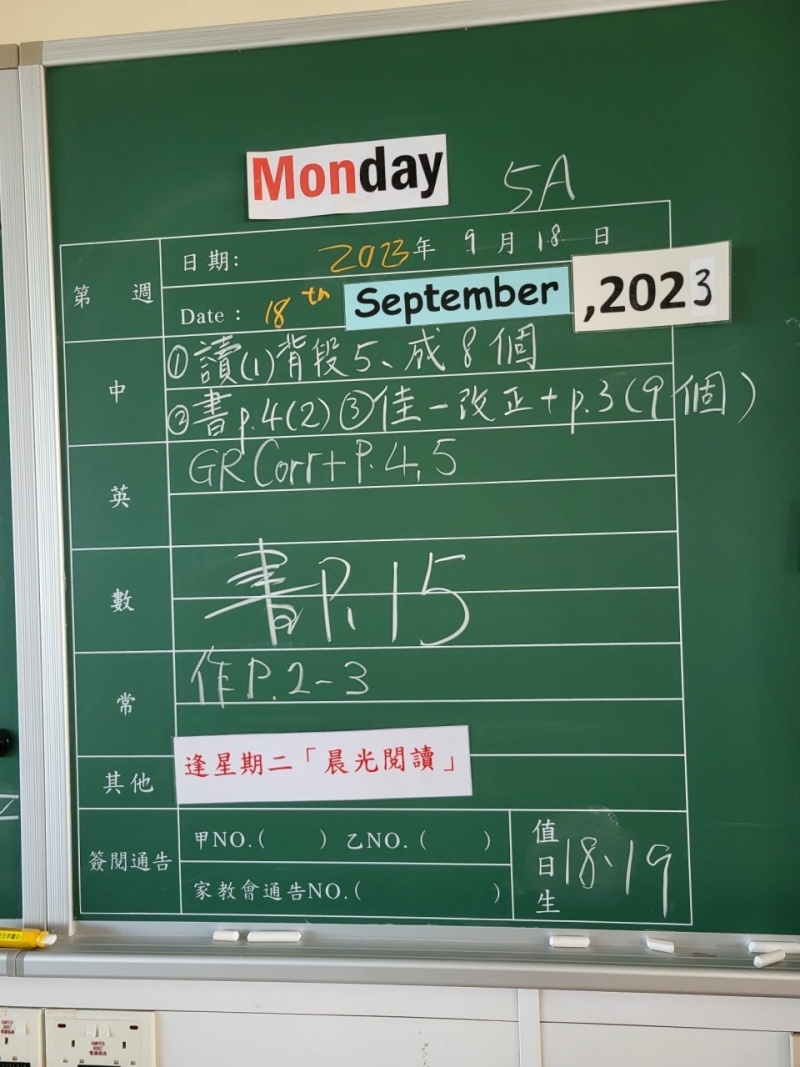 Monday 5A
第 週
日期: 2023年 9月 18日
Date : 18th September ,2023
中
①讀(1)背段5、成8個
②書p.4(2) ③佳一改正+p.3(9個)
英
GR Corr+P.4,5
數
書P.15
常
作P.2-3
其他
逢星期二「晨光閱讀」
簽閱通告
甲NO.( ) 乙NO.( )
家教會通告NO.( )
值日生
18、19